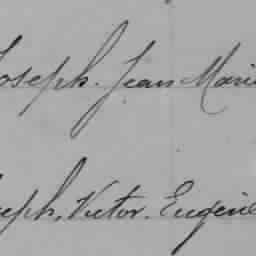 Joseph. Jean Marie
Joseph, Victor. Eugène